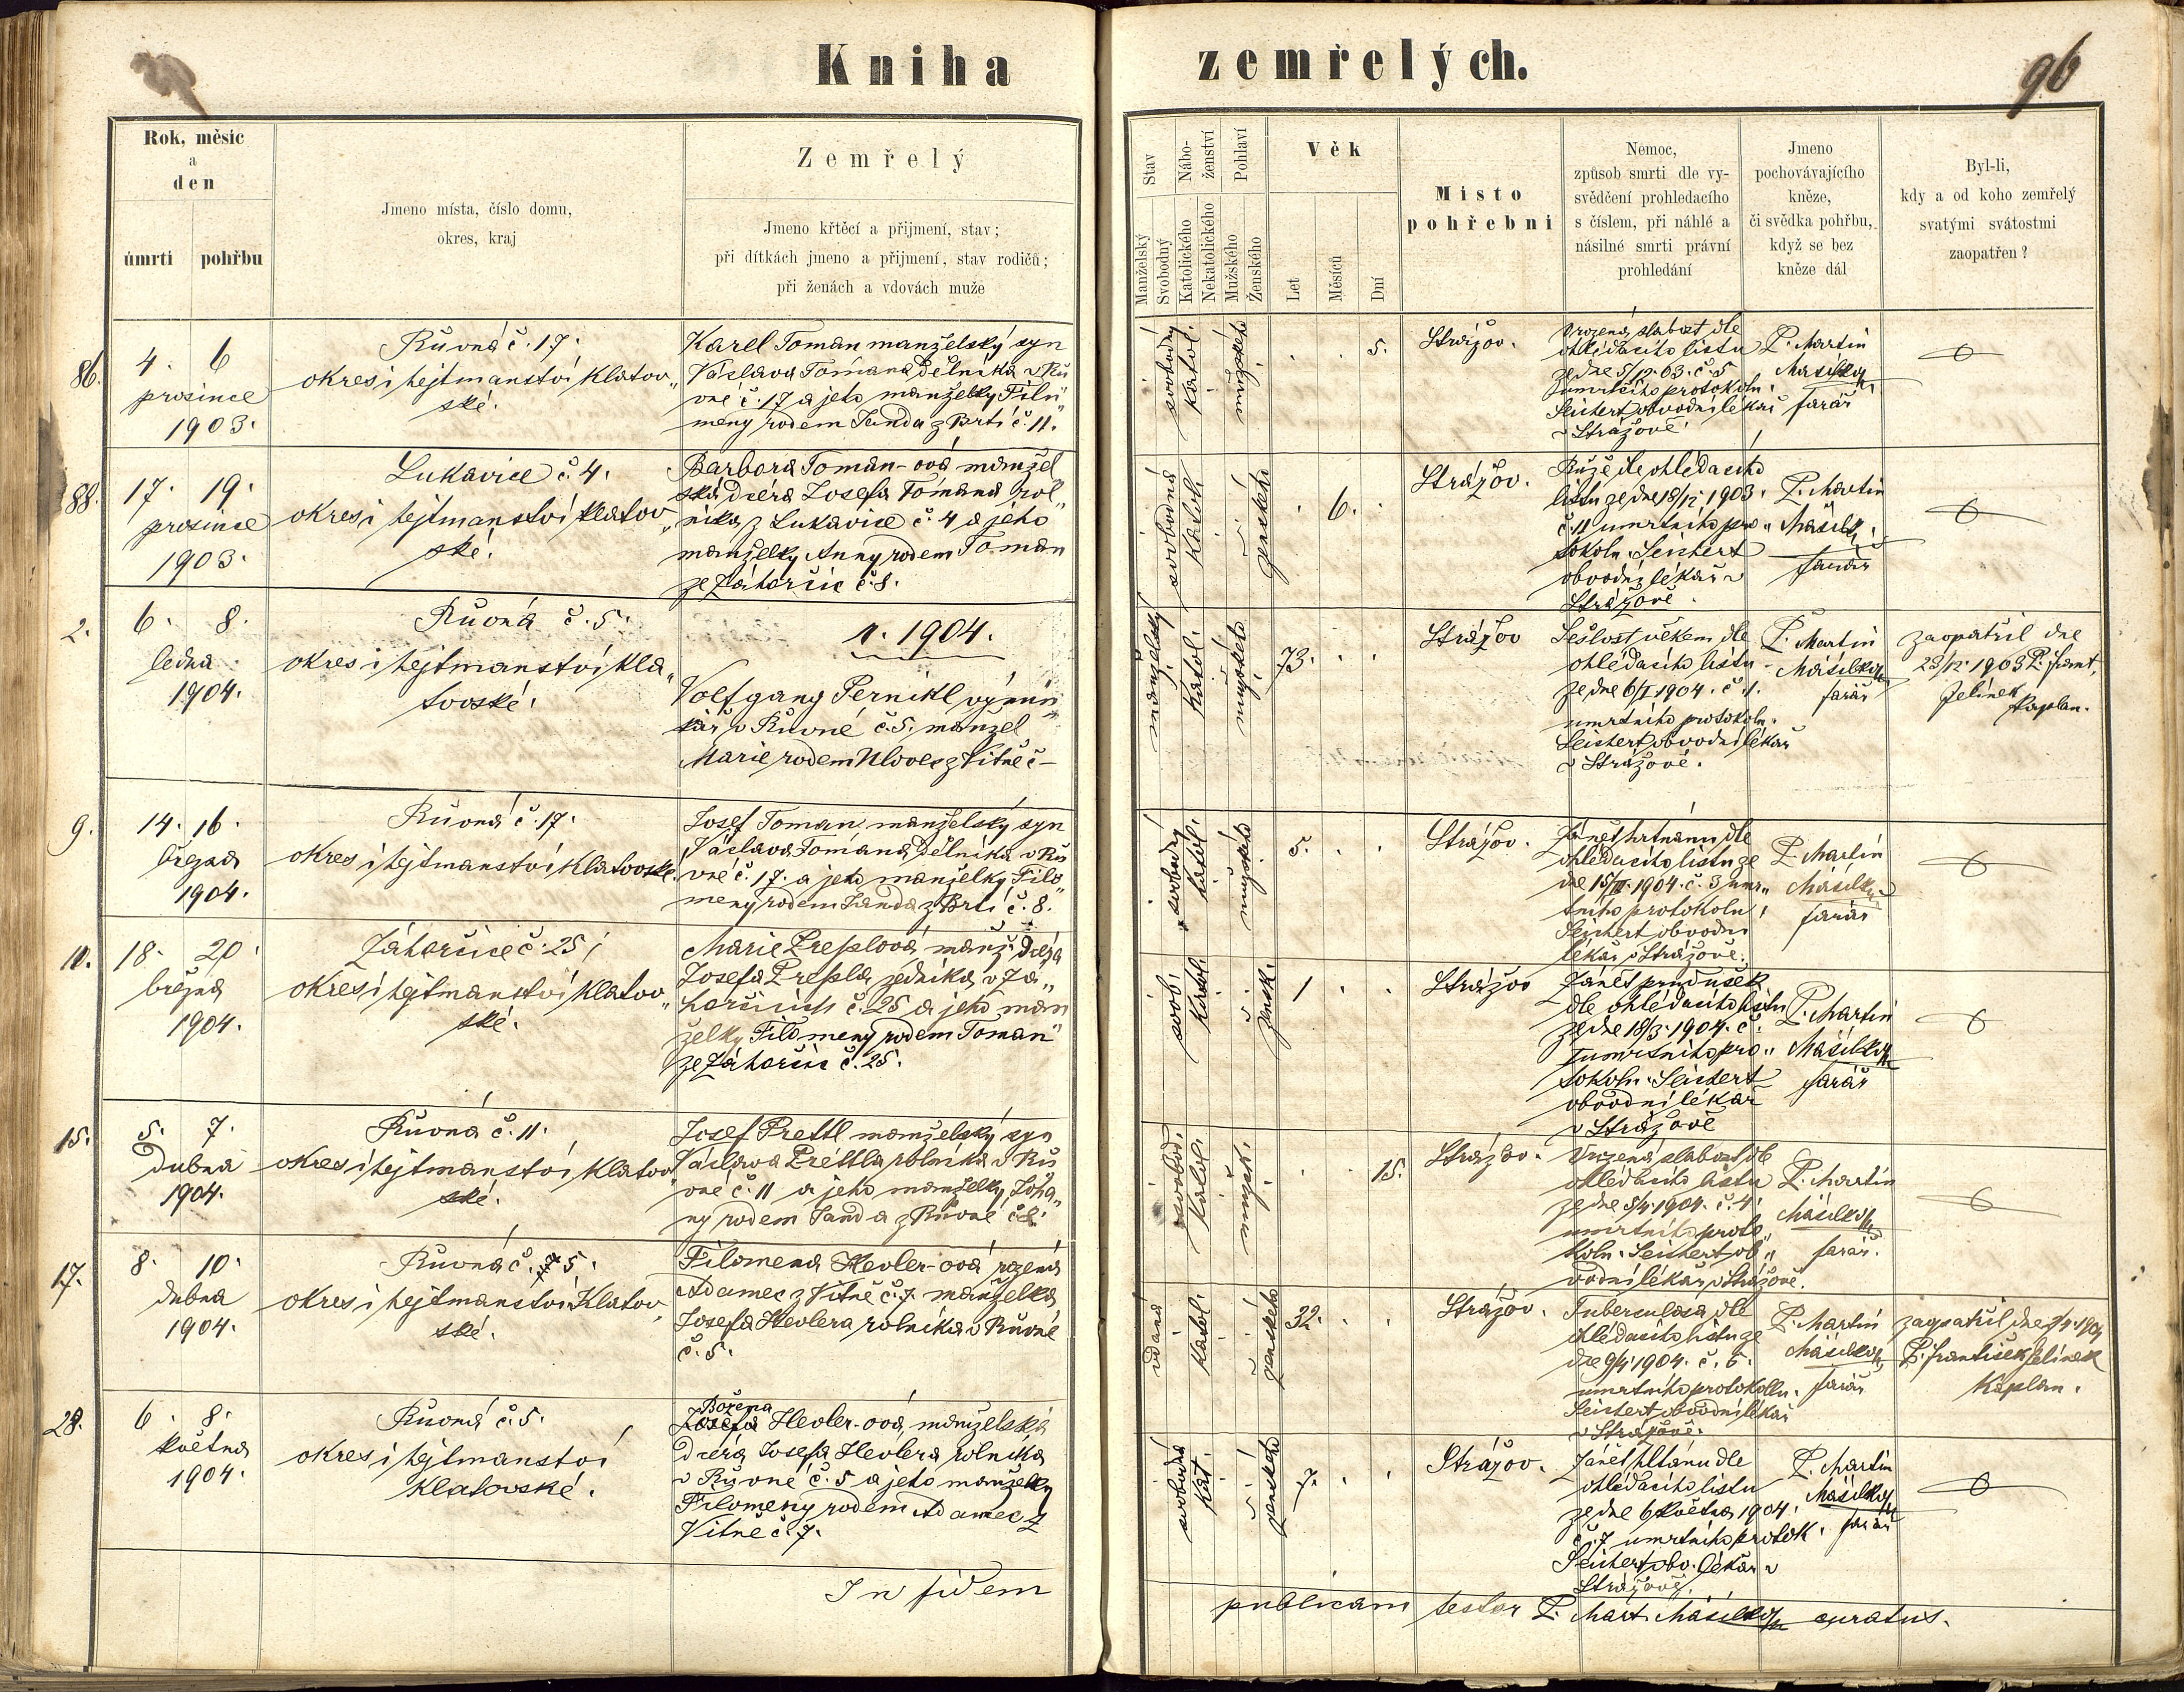 Kniha zemřelých.
96
Rok, měsíc
a
den
úmrtí
pohřbu
Jmeno místa, číslo domu,
okres, kraj
Zemřelý
Jmeno křtěcí a přijmení, stav;
při dítkách jmeno a přijmení, stav rodičů;
při ženách a vdovách muže
Stav
Manželský
Svobodný
Nábo-
ženství
Katolického
Nekatolického
Pohlaví
Mužského
Ženského
Věk
Let
Měsíců
Dní
Místo
pohřební
Nemoc,
způsob smrti dle vy-
svědčení prohledacího
s číslem, při náhlé a
násilné smrti právní
prohledání
Jmeno
pochovávajícího
kněze,
či svědka pohřbu,
když se bez
kněze dál
Byl-li,
kdy a od koho zemřelý
svatými svátostmi
zaopatřen?
86.
4. 6
prosince
1903.
Růvná č. 17.
okres i hejtmanství Klatov„
ské.
Karel Toman manželský syn
Václava Tomana dělníka v Rů
vné č. 17 a jeho manželky Filo„
meny rodem Janda z Brtí č. 11.
svobodný
katol.
mužského
5.
Strážov.
Vrozená slabost dle
ohledacího listu
ze dne 5/12. 03. č. 5
úmrtčího protokolu.
Seichert obvodní lékař
v Strážově.
P. Martin
Masilko
farář
88.
17. 19.
prosince
1903.
Lukavice č. 4.
okres i hejtmanství klatov„
ské.
Barbora Toman-ová manžel
ská dcera Josefa Tomana rol„
níka z Lukavice č. 4 a jeho
manželky Anny rodem Toman
ze Záhorčic č. 8.
svobodná
katol.
ženského
6.
Strážov.
Růže dle ohledacího
listu ze dne 18/12 1903.
č. 11 umrtního pro„
tokolu. Seichert
obvodní lékař v
Strážově.
P. Martin
Masilko
farář
2.
6. 8.
ledna
1904.
Růvná č. 5.
okres i hejtmanství kla„
tovské.
r. 1904.
Volfgang Pernikl výmin„
kář v Růvné č. 5. manžel
Marie rodem Ulovec z Vitně č –
manželský
katol.
mužského
73.
Strážov
Sešlost věkem dle
ohledacího listu
ze dne 6/I 1904. č. 1.
umrtního protokolu.
Seichert obvodní lékař
v Strážově.
P. Martin
Masilko
farář
zaopatřil dne
23/12. 1903 P. Frant.
Jelínek
kaplan.
9.
14. 16.
března
1904.
Růvná č. 17.
okres i hejtmanství Klatovské.
Josef Toman manželský syn
Václava Tomana, dělníka v Rů
vné č. 17. a jeho manželky Filo„
meny rodem Janda z Brtí č. 8.
svobodný
katol.
mužského
5.
Strážov.
Zánět hrtanu dle
ohledacího listu ze
dne 15/III. 1904. č. 3 umr„
tního protokolu,
Seichert obvodní
lékař v Strážově.
P. Martin
Masilko
farář
10.
18. 20.
března
1904.
Záhorčice č. 25
okres i hejtmanství Klatov„
ské.
Marie Preslová, manž. dcera
Josefa Presla, zedníka v Zá„
horčicích č. 25 a jeho man
želky Filomeny rodem Toman
ze Záhorčic č. 25.
svob.
katol.
žensk.
1
Strážov
Zánět průdušek
dle ohledacího listu
ze dne 18/3. 1904. č.
umrtního pro„
tokolu. Seichert
obvodní lékař
v Strážově
P. Martin
Masilko
farář
15.
5. 7.
dubna
1904.
Růvná č. 11.
okres i hejtmanství Klatov„
ské.
Josef Prettl manželský syn
Václava Prettla rolníka v Rů
vné č. 11 a jeho manželky Joha„
ny rodem Janda z Růvné č. 8.
svobod.
katol.
mužsk.
15.
Strážov.
Vrozená slabost db
ohledacího listu
ze dne 5/4. 1904. č. 4.
umrtního proto„
kolu. Seichert ob„
vodní lékař v Strážově.
P. Martin
Masilko
farář.
17.
8. 10.
dubna
1904.
Růvná č. 5.
okres i hejtmanství Klatov„
ské.
Filomena Hevler-ová rozená
Adamec z Vitně č. 7. manželka
Josefa Hevlera rolníka v Růvné
č. 5.
vdaná
katol.
ženského
32.
Strážov.
Tuberculosa dle
ohledacího listu ze
dne 9/4. 1904. č. 6.
umrtního protokollu.
Seichert obvodní lékař
v Strážově.
P. Martin
Masilko
farář
zaopatřil dne 1904
P. František Jelínek
kaplan.
28.
6. 8.
května
1904.
Růvná č. 5.
okres i hejtmanství
Klatovské.
Božena
Josefa Hevler-ová, manželská
dcera Josefa Hevlera rolníka
v Růvné č. 5 a jeho manželky
Filomeny rodem Adamec z
Vitně č. 7.
svobodná
kat.
ženského
7.
Strážov.
Zánět hltanu dle
ohledacího listu
ze dne 6 května 1904.
č. 7 umrtního protok.
Seichert obv. lékař v
Strážově.
P. Martin
Masilko
farář
In fidem
publicam testor P. Mart. Masilko curatus.